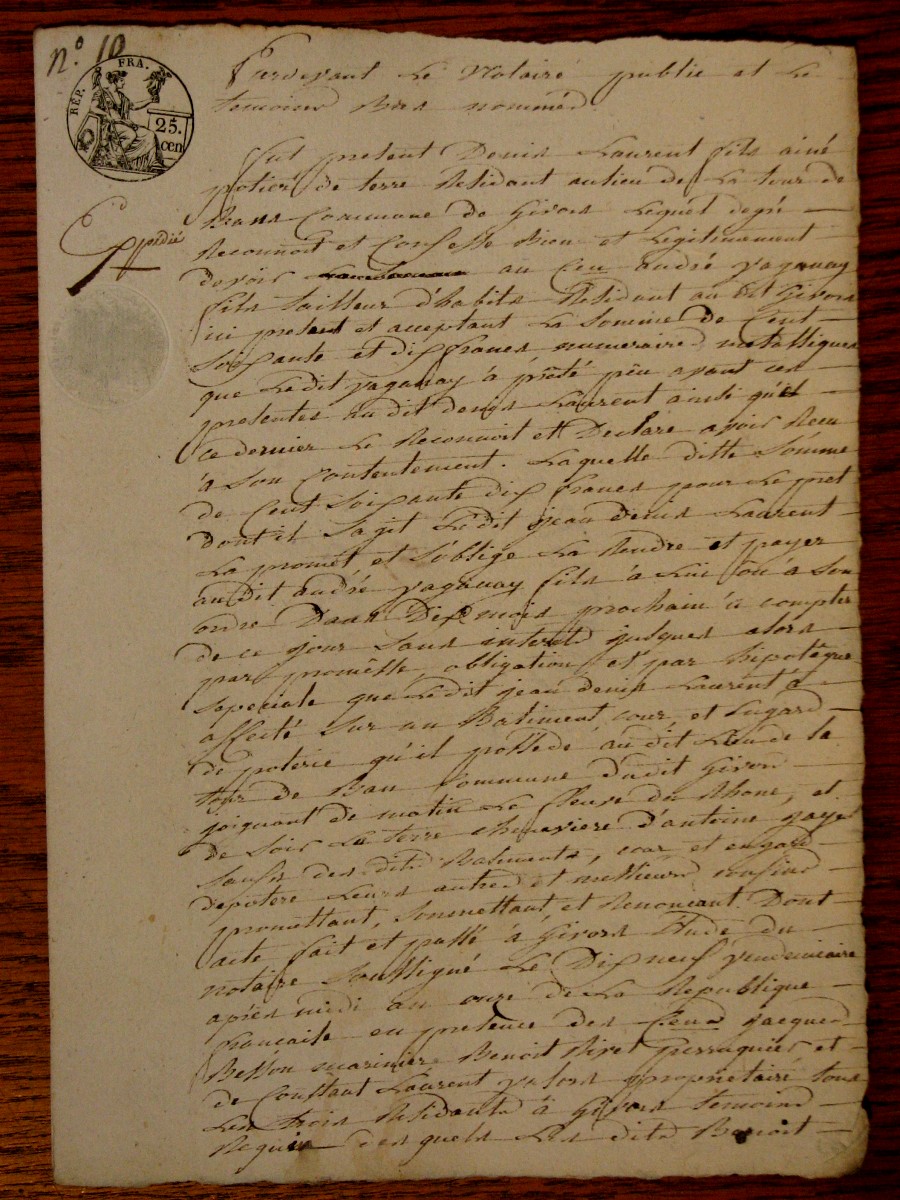 n.º 10
RÉP. FRA.
25.
cen
Pardevant Le Notaire public et Le
temoins Bas nommés
Fut present Denis Laurent fils ainé
potier de terre Residant au lieu de La tour de
Bans Commune de Givors Lequel degré
Expedié
Reconnoit et Confesse Bien et Legitimement
devoir au Cen andré vaganay
fils tailleur d'habits Residant au dit Givors
ici présent et acceptant La Somme de Cent
Soixante et dix francs numeraires metalliques
que Ledit vaganay à prêté peu avant ces
presentes audit denis Laurent ainsi qu'il
ce dernier Le Reconnoit et Declare avoir Recu
à Son Contentement. Laquelle ditte Somme
de Cent Soixante dix francs pour Le pret
dont il Sagit Ledit jean denis Laurent
La promet, et S'oblige La Rendre et payer
audit andré vaganay fils à Lui ou à Son
ordre Dans Dix mois prochain à compter
de ce jour Sans interet jusques alors
par promesse, obligation, et par hipotèque
Speciale que Ledit jean denis Laurent à
affecté Sur un Batiment, cour, et
de poterie qu'il possede audit Lieu de la
tour de Ban Commune dudit Givors
joignant de matin Le fleuve du Rhone, et
de Soir La terre cheneviere d'antoine
Saufs des dits Batiments, cour et
Leurs autres et meilleurs confins
promettant, Soumettant, et Renoncant. Dont
acte fait et passé à Givors Etude du
notaire Soussigné Le Dix neuf vendemiaire
après midi an onze de La Republique
francaise en presence des Cens jacques
Besson marinier, Benoit perruquier et
de Constant Laurent valors propriétaire tous
Les trois Residants à Givors temoins
Requis des quels Les dits Benoit